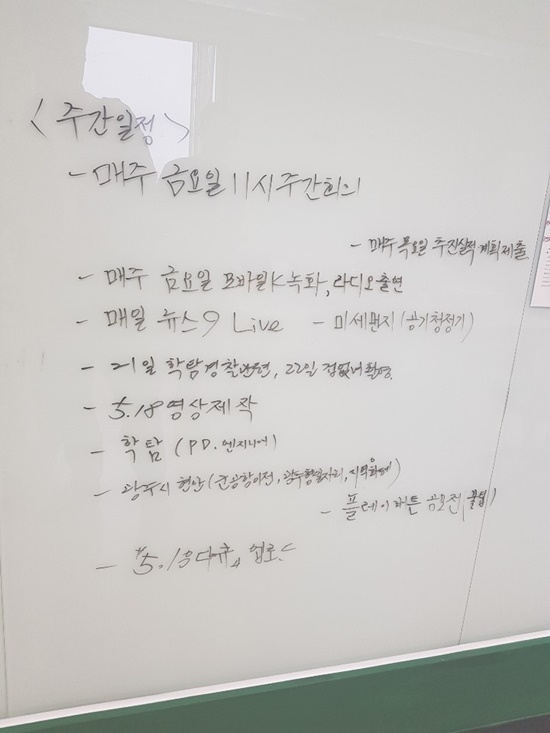 <주간일정>
- 매주 금요일 11시 주간회의
- 매주 목요일 추진실적 계획제출
- 매주 금요일 모바일K 녹화, 라디오 출연
- 매일 뉴스9 Live - 미세먼지 (공기청정기)
- 21일 학탐경찰, 22일
- 5.18영상제작
- 학탐 (PD. 엔지니어)
- 광주시 현안 (군공항이전, 광주형일자리, 지역화폐)
- 플레이버튼 공모전
- 5.18다큐, 업로드